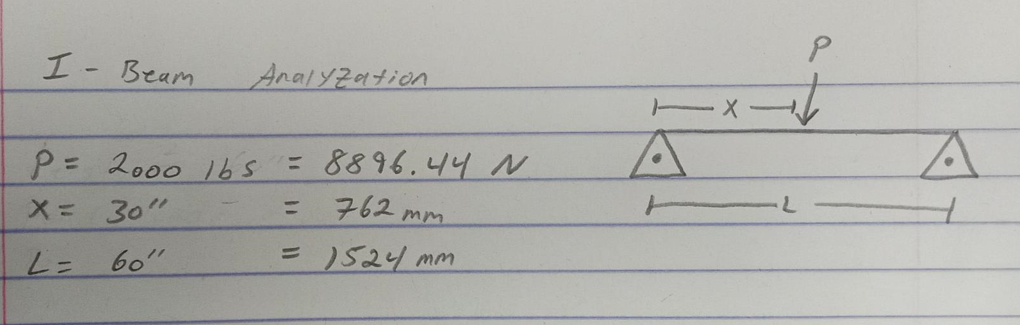 I - Beam Analyzation
P
X
P = 2000 lbs = 8896.44 N
X = 30" = 762 mm
L
L = 60" = 1524 mm